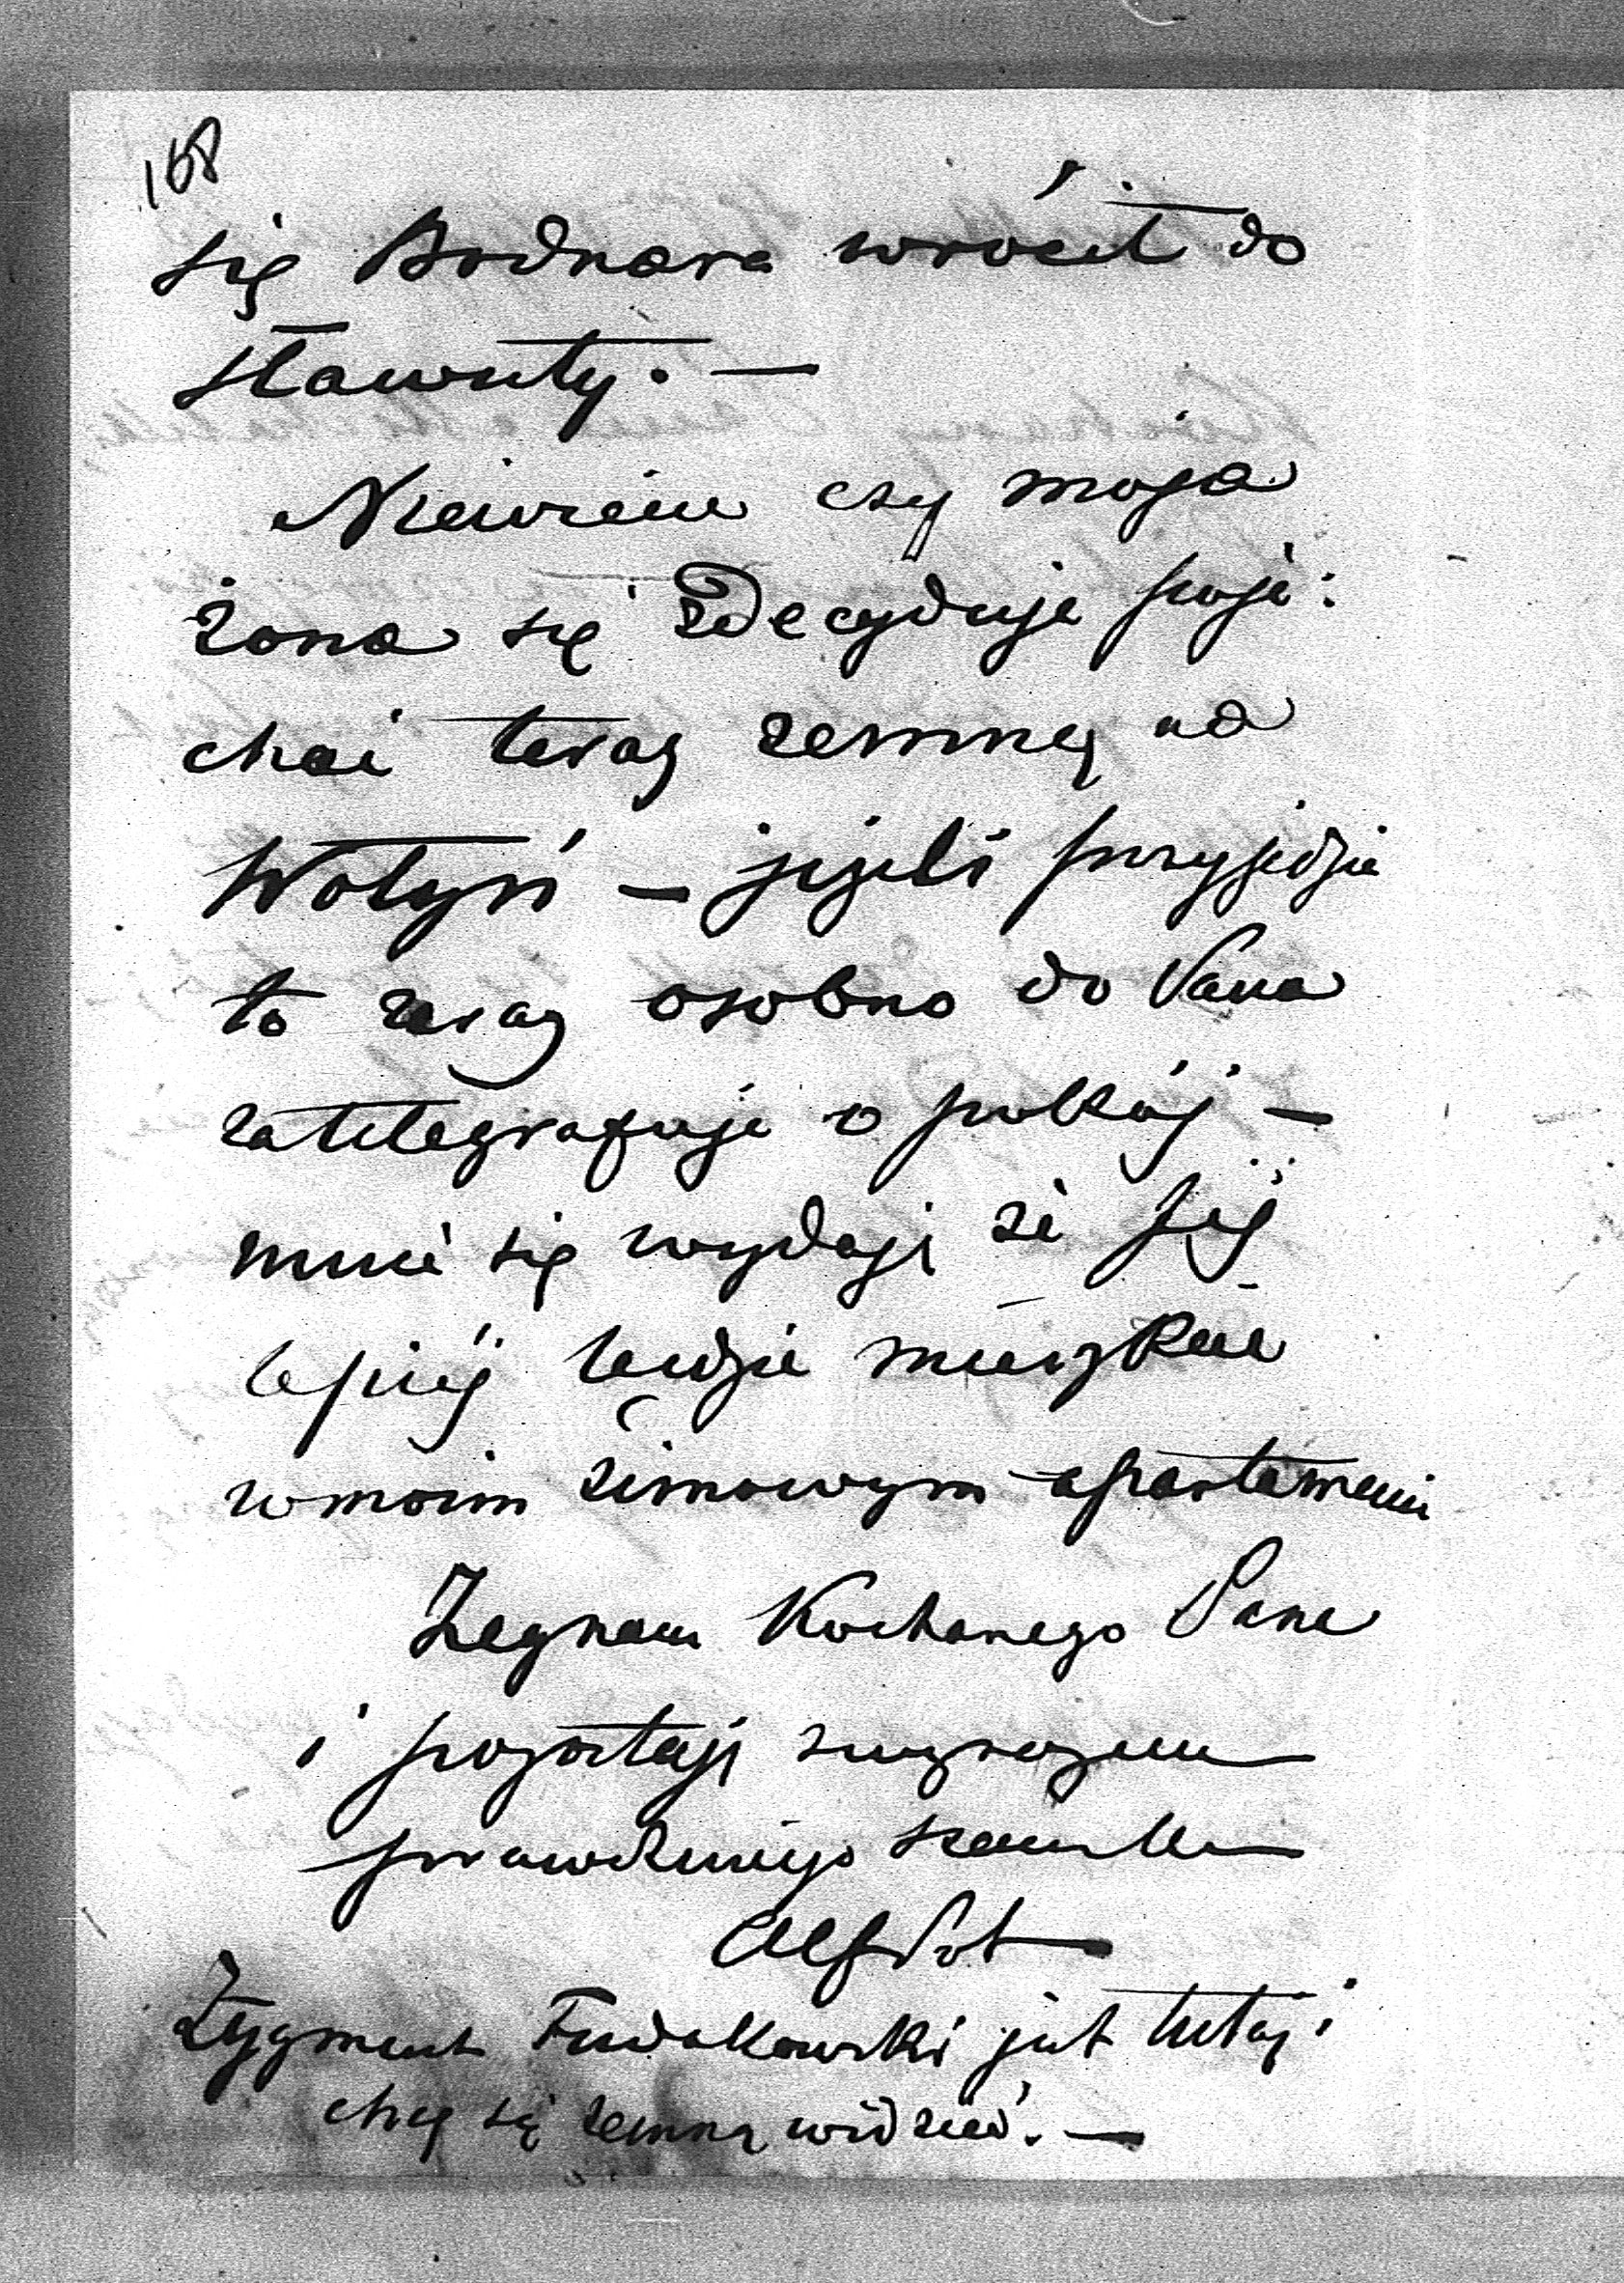 168
się Bodnara wrócił do
Sławuty. —
Niewiem czy moja
żona się zdecyduje poje:
chać teraz zemną na
Wołyń — jeżeli przyjedzie
to zaraz osobno do Pana
zatelegrafuje o pokój —
mnie się wydaje że jej
lepiej będzie mieszkać
w moim zimowym apartamencie
Żegnam Kochanego Pana
i pozostaję z wyrazem
prawdziwego szacunku
Alf Pot
Zygmunt Fudakowski jest tutaj i
chcę się zemną widzieć. —